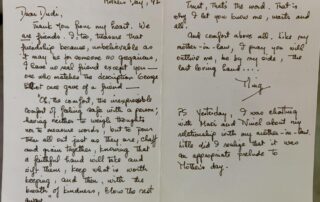 Mother's Day, '92
Dear Dudi,
Thank you from my heart. We
are friends. I, too, treasure that
friendship because, unbelievable as
it may be for someone so gregarious,
I have no real friend except you —
one who matches the description George
Elliot once gave of a friend —
"Oh, the comfort, the inexpressible
comfort of feeling safe with a person;
having neither to weigh thoughts
nor to measure words, but to pour
them all out just as they are, chaff
and grain together, knowing that
a faithful hand will take and
sift them, keep what is worth
keeping, and then, with the
breath of kindness, blow the rest
away."
Trust, that's the word. That is
why I let you know me, warts and
all.
And comfort above all. Like my
mother-in-law, I pray you will
outlive me, be by my side, the
last loving hand....
Ming
PS Yesterday, I was chatting
with Mari and Ninel about my
relationship with my mother-in-law.
Little did I realize that it was
an appropriate prelude to
Mother's day.